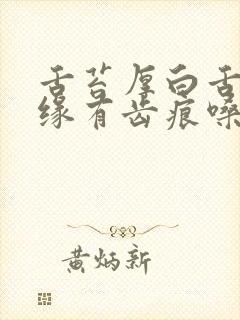 舌苔厚白舌
缘有齿痕嗓
黄炳新